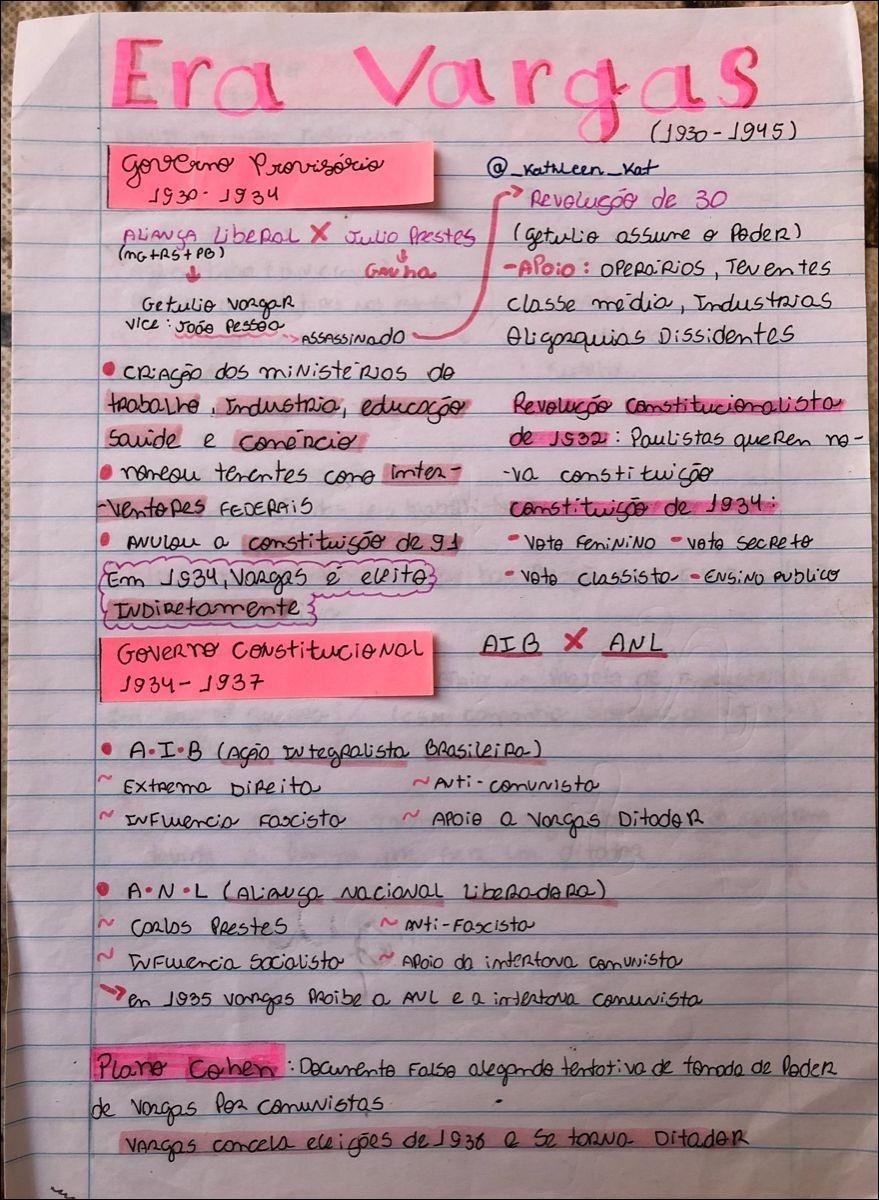 Era Vargas
(1930-1945)
Governo Provisório
1930-1934
ALIANÇA LIBERAL X Julio Prestes
(MG+RS+PB)
Ganha
Getulio Vargar
Vice: João Pessoa
ASSASSINADO
@_Kathleen_Kat
Revolução de 30
(Getulio assume o Poder)
-APoio: OPERÁRIOS, Tenentes
classe média, Industrias
Oligarquias Dissidentes
• CRIAÇÃO dos ministérios do
trabalho, Industria, educação
saúde e comércio
• nomeou tenentes como inter-
-ventores FEDERAIS
• ANULOU a constituição de 91
Em 1934, Vargas é eleito
INDIRetamente
Revolução constitucionalista
de 1932: Paulistas querem no-
-va constituição
constituição de 1934:
• Voto Feminino • voto secreto
• voto classista • ENSINO PUBLICO
GOVERNO CONSTITUCIONAL
1934-1937
AIB X ANL
• A•I•B (AÇÃO INTEGRALISTA BRASILEIRA)
~ EXTREMA DIREITA ~ ANTI-comunista
~ INFLUENCIA FASCISTA ~ APOIO a Vargas DitadoR
• A•N•L (ALIANÇA NACIONAL LIBERADORA)
~ Carlos Prestes ~ ANTI-FASCISTA
~ INFLUENCIA SOCIALISTA ~ APOIO da intentona comunista
en 1935 vargas PROIBE a ANL e a intentona comunista
Plano Cohen: Documento Falso alegando tentativa de tomada de Poder
de Vargas Por comunistas
VARGAS cancela eleições de 1938 e se torna DitadoR